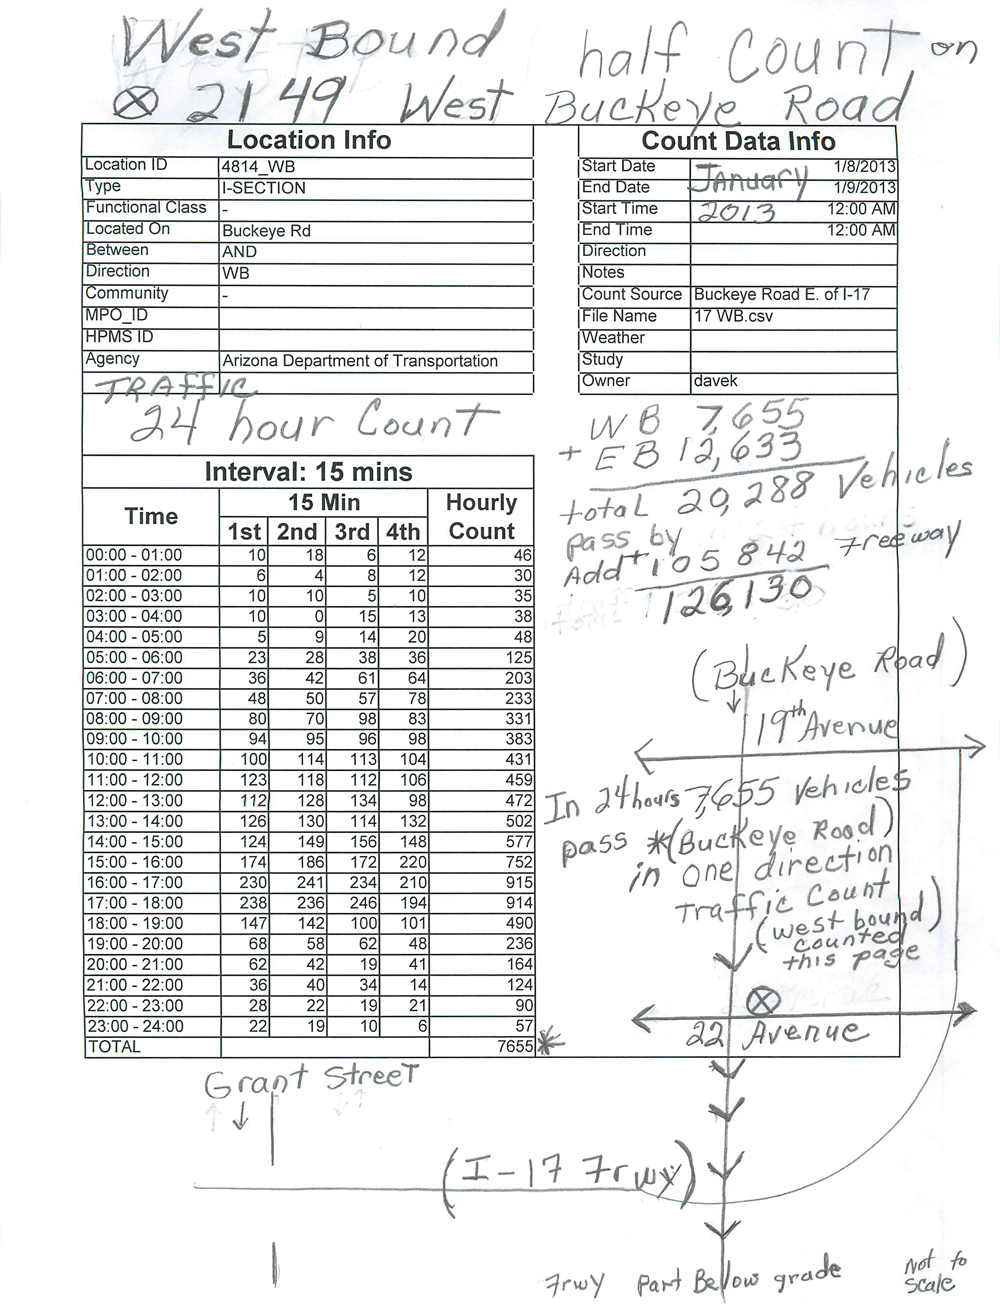 West Bound half Count on
⊗ 2149 West Buckeye Road
Location Info
Location ID 4814_WB
Type I-SECTION
Functional Class -
Located On Buckeye Rd
Between AND
Direction WB
Community -
MPO_ID
HPMS ID
Agency Arizona Department of Transportation
TRAffIC
24 hour Count
Count Data Info
Start Date 1/8/2013
End Date JANuary 1/9/2013
Start Time 2013 12:00 AM
End Time 12:00 AM
Direction
Notes
Count Source Buckeye Road E. of I-17
File Name 17 WB.csv
Weather
Study
Owner davek
Interval: 15 mins
Time 15 Min Hourly Count
1st 2nd 3rd 4th
00:00 - 01:00 10 18 6 12 46
01:00 - 02:00 6 4 8 12 30
02:00 - 03:00 10 10 5 10 35
03:00 - 04:00 10 0 15 13 38
04:00 - 05:00 5 9 14 20 48
05:00 - 06:00 23 28 38 36 125
06:00 - 07:00 36 42 61 64 203
07:00 - 08:00 48 50 57 78 233
08:00 - 09:00 80 70 98 83 331
09:00 - 10:00 94 95 96 98 383
10:00 - 11:00 100 114 113 104 431
11:00 - 12:00 123 118 112 106 459
12:00 - 13:00 112 128 134 98 472
13:00 - 14:00 126 130 114 132 502
14:00 - 15:00 124 149 156 148 577
15:00 - 16:00 174 186 172 220 752
16:00 - 17:00 230 241 234 210 915
17:00 - 18:00 238 236 246 194 914
18:00 - 19:00 147 142 100 101 490
19:00 - 20:00 68 58 62 48 236
20:00 - 21:00 62 42 19 41 164
21:00 - 22:00 36 40 34 14 124
22:00 - 23:00 28 22 19 21 90
23:00 - 24:00 22 19 10 6 57
TOTAL 7655 *
WB 7,655
+ EB 12,633
total 20,288 Vehicles
pass by
Add + 105 842 Freeway
126,130
(Buckeye Road)
19th Avenue
In 24hours 7,655 Vehicles
pass *(Buckeye Road)
in one direction
traffic Count
(west bound)
counted
this page
⊗
22 Avenue
Grant Street
(I-17 Frwy)
Frwy part Below grade
Not to
scale